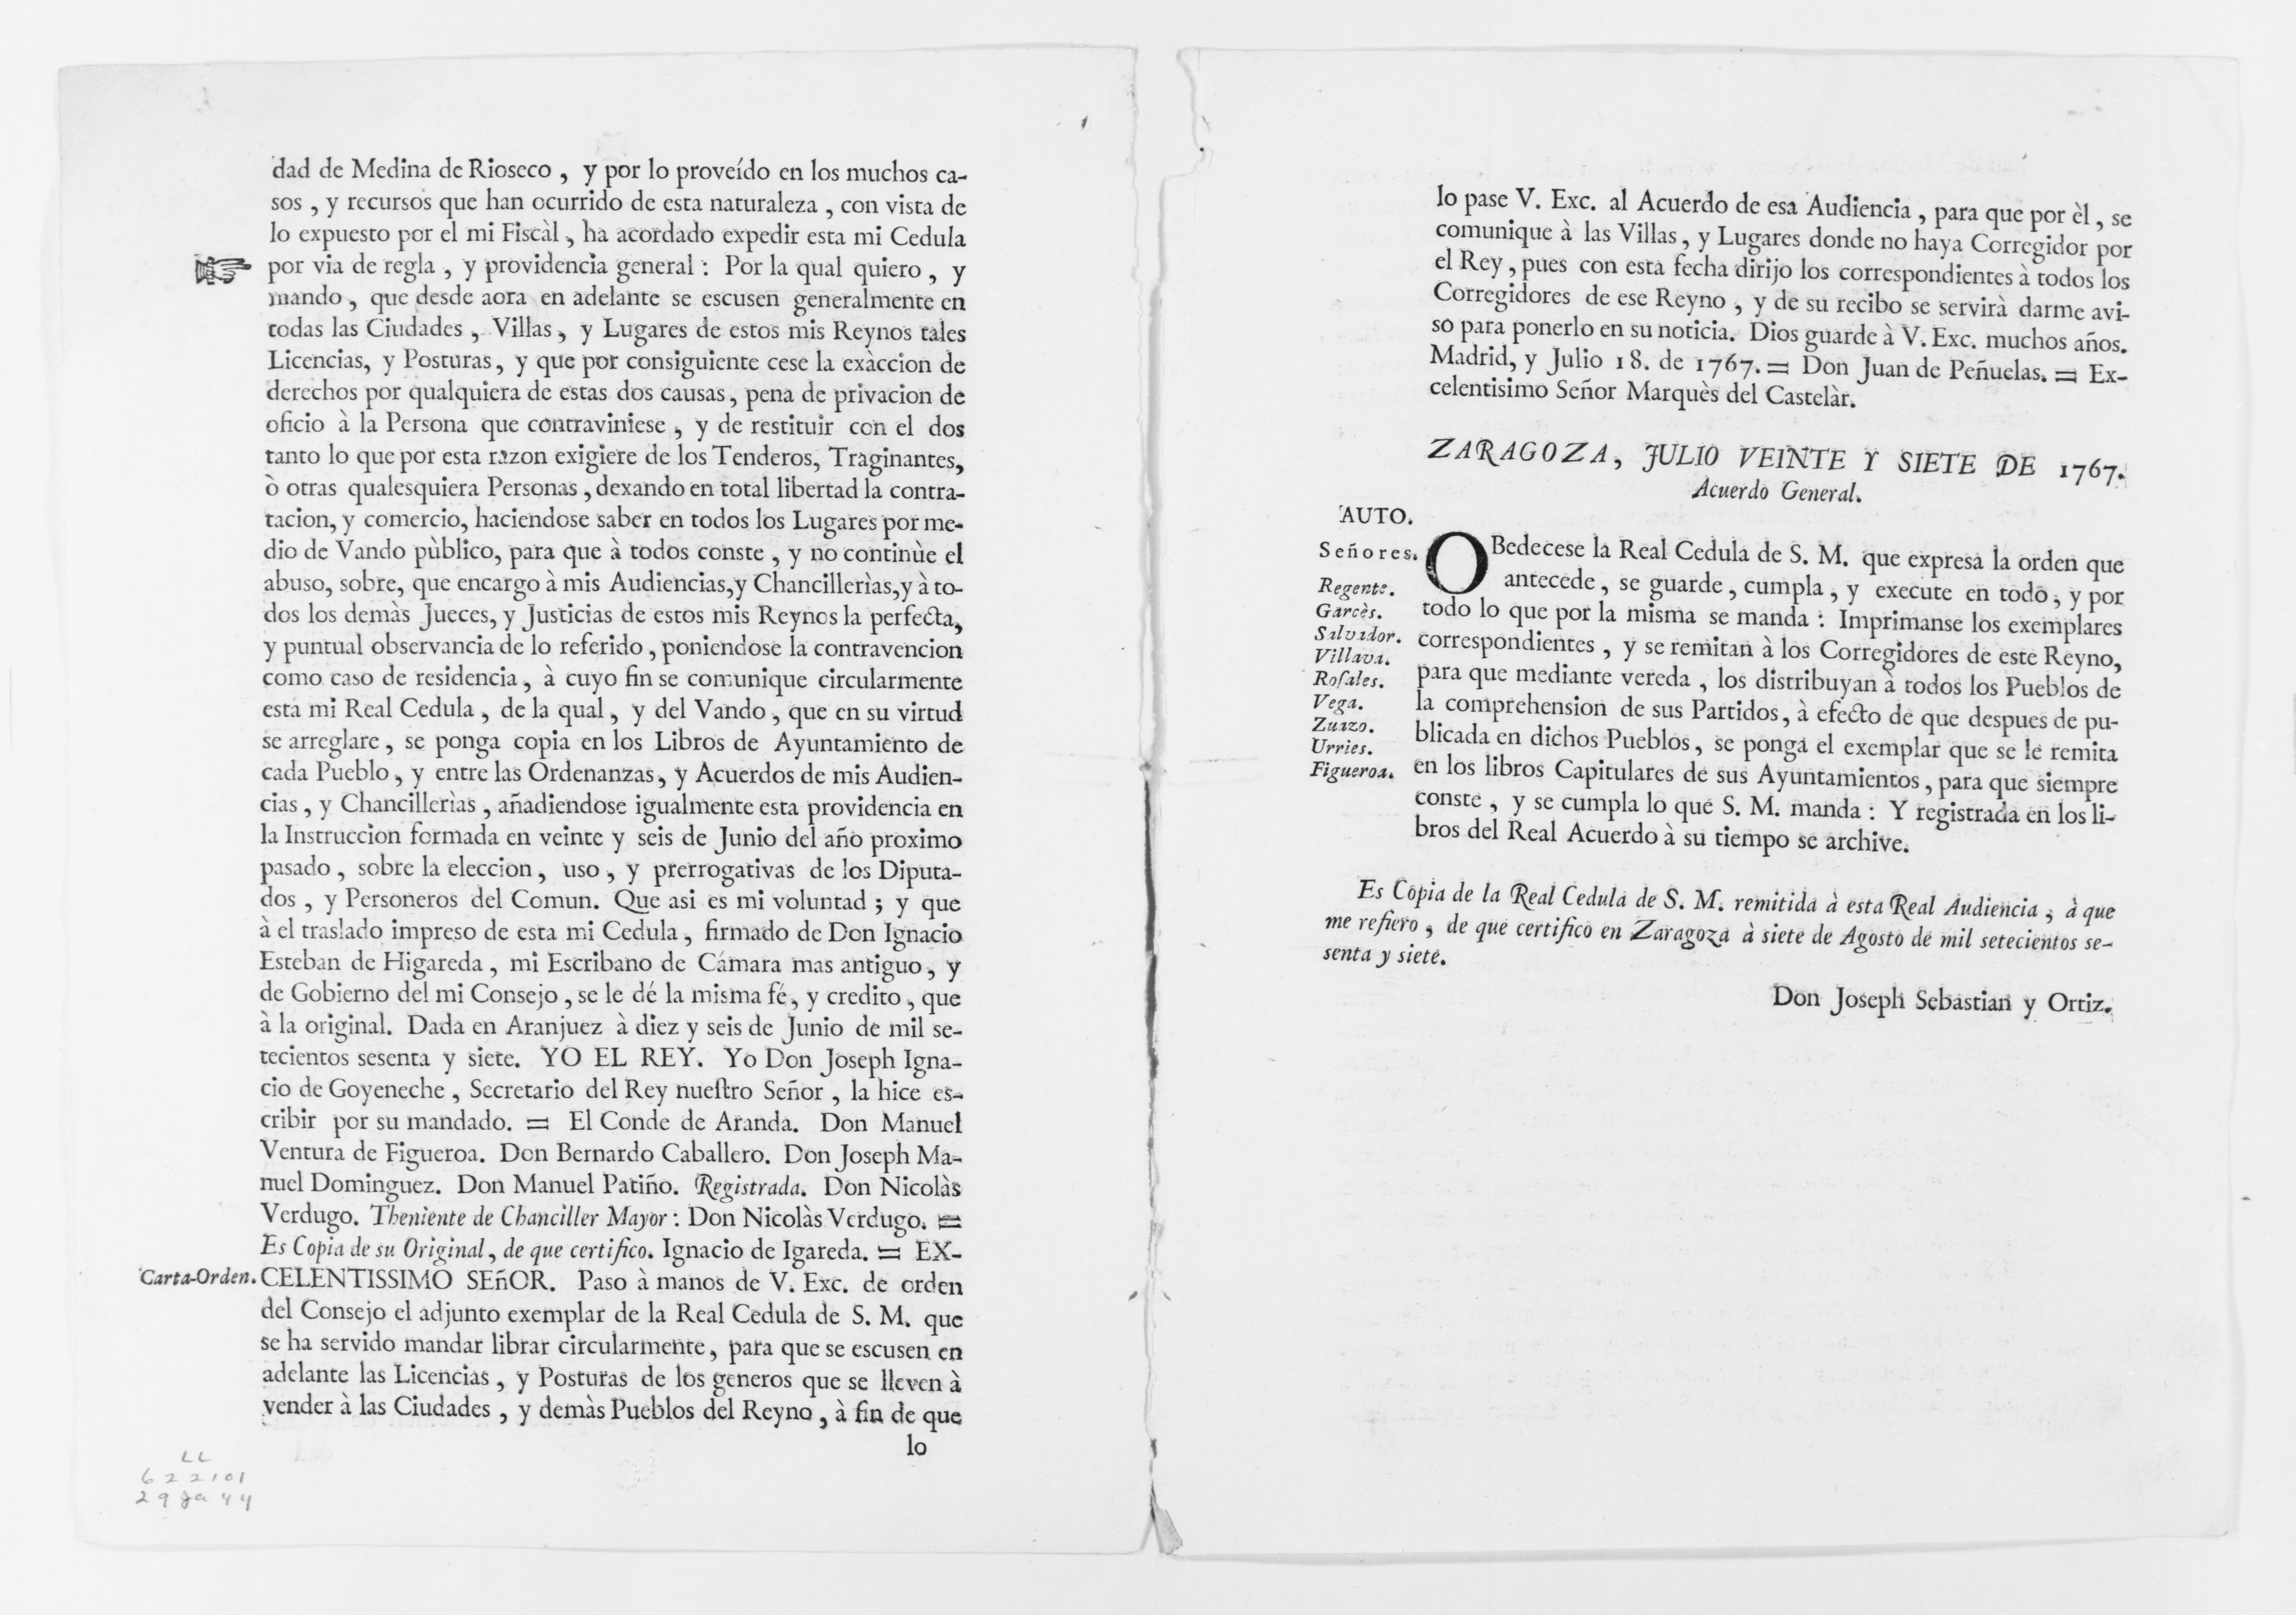 dad de Medina de Rioseco , y por lo proveído en los muchos ca-
sos , y recursos que han ocurrido de esta naturaleza , con vista de
lo expuesto por el mi Fiscàl , ha acordado expedir esta mi Cedula
por via de regla , y providencia general : Por la qual quiero , y
mando , que desde aora en adelante se escusen generalmente en
todas las Ciudades , Villas , y Lugares de estos mis Reynos tales
Licencias, y Posturas, y que por consiguiente cese la exàccion de
derechos por qualquiera de estas dos causas, pena de privacion de
oficio à la Persona que contraviniese , y de restituir con el dos
tanto lo que por esta razon exigiere de los Tenderos, Traginantes,
ò otras qualesquiera Personas , dexando en total libertad la contra-
tacion, y comercio, haciendose saber en todos los Lugares por me-
dio de Vando pùblico, para que à todos conste , y no continùe el
abuso, sobre, que encargo à mis Audiencias,y Chancillerìas,y à to-
dos los demàs Jueces, y Justicias de estos mis Reynos la perfecta,
y puntual observancia de lo referido , poniendose la contravencion
como caso de residencia, à cuyo fin se comunique circularmente
esta mi Real Cedula , de la qual, y del Vando , que en su virtud
se arreglare , se ponga copia en los Libros de Ayuntamiento de
cada Pueblo , y entre las Ordenanzas, y Acuerdos de mis Audien-
cias , y Chancillerìas , añadiendose igualmente esta providencia en
la Instruccion formada en veinte y seis de Junio del año proximo
pasado , sobre la eleccion, uso , y prerrogativas de los Diputa-
dos , y Personeros del Comun. Que asi es mi voluntad ; y que
à el traslado impreso de esta mi Cedula , firmado de Don Ignacio
Esteban de Higareda , mi Escribano de Cámara mas antiguo , y
de Gobierno del mi Consejo , se le dé la misma fé, y credito , que
à la original. Dada en Aranjuez à diez y seis de Junio de mil se-
tecientos sesenta y siete. YO EL REY. Yo Don Joseph Igna-
cio de Goyeneche , Secretario del Rey nueſtro Señor , la hice es-
cribir por su mandado. = El Conde de Aranda. Don Manuel
Ventura de Figueroa. Don Bernardo Caballero. Don Joseph Ma-
nuel Dominguez. Don Manuel Patiño. Registrada. Don Nicolàs
Verdugo. Theniente de Chanciller Mayor : Don Nicolàs Verdugo. =
Es Copia de su Original, de que certifico. Ignacio de Igareda. = EX-
Carta-Orden. CELENTISSIMO SEñOR. Paso à manos de V. Exc. de orden
del Consejo el adjunto exemplar de la Real Cedula de S. M. que
se ha servido mandar librar circularmente, para que se escusen en
adelante las Licencias , y Posturas de los generos que se lleven à
vender à las Ciudades , y demàs Pueblos del Reyno , à fin de que
lo
LL
622101
29 Ja 44
lo pase V. Exc. al Acuerdo de esa Audiencia , para que por èl , se
comunique à las Villas , y Lugares donde no haya Corregidor por
el Rey , pues con esta fecha dirijo los correspondientes à todos los
Corregidores de ese Reyno , y de su recibo se servirà darme avi-
so para ponerlo en su noticia. Dios guarde à V. Exc. muchos años.
Madrid, y Julio 18. de 1767. = Don Juan de Peñuelas. = Ex-
celentisimo Señor Marquès del Castelàr.
ZARAGOZA, JULIO VEINTE Y SIETE DE 1767.
Acuerdo General.
AUTO.
Señores.
Regente.
Garcès.
Salvador.
Villava.
Roſales.
Vega.
Zuazo.
Urries.
Figueroa.
OBedecese la Real Cedula de S. M. que expresa la orden que
antecede , se guarde , cumpla , y execute en todo , y por
todo lo que por la misma se manda : Imprimanse los exemplares
correspondientes , y se remitan à los Corregidores de este Reyno,
para que mediante vereda , los distribuyan à todos los Pueblos de
la comprehension de sus Partidos, à efecto de que despues de pu-
blicada en dichos Pueblos, se ponga el exemplar que se le remita
en los libros Capitulares de sus Ayuntamientos , para que siempre
conste , y se cumpla lo que S. M. manda : Y registrada en los li-
bros del Real Acuerdo à su tiempo se archive.
Es Copia de la Real Cedula de S. M. remitida à esta Real Audiencia , à que
me refiero , de que certifico en Zaragoza à siete de Agosto de mil setecientos se-
senta y siete.
Don Joseph Sebastian y Ortiz.